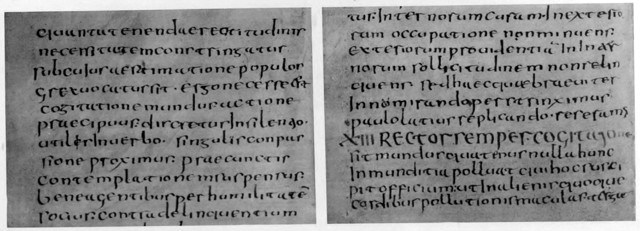 quanta tenendae rectitudinis
necessitatem constringatur
sub cuius aestimatione populos
grex uocatus sit · ergo necesse est
cogitatione mundus actione
praecipuus discretus in silentio ·
utilis in uerbo · singulis conpas
sione proximus prae cunctis
contemplatione suspensus
bene agentibus per humilitatē
socius contra delinquentium
tus internorum curam in exterio
rum occupatione non minuens
exteriorum prouidentiā in inter
norum sollicitudinem non relin
quens sed haec quae breuiter
perstrinximus
paulo latius replicando reseramus
XIII RECTOR SEMPER COGITATIONE
sit mundus quatenus nulla hunc
inmunditia polluat qui hoc susci
pit officium ut in alienis quoque
cordibus pollutionis maculas tergat